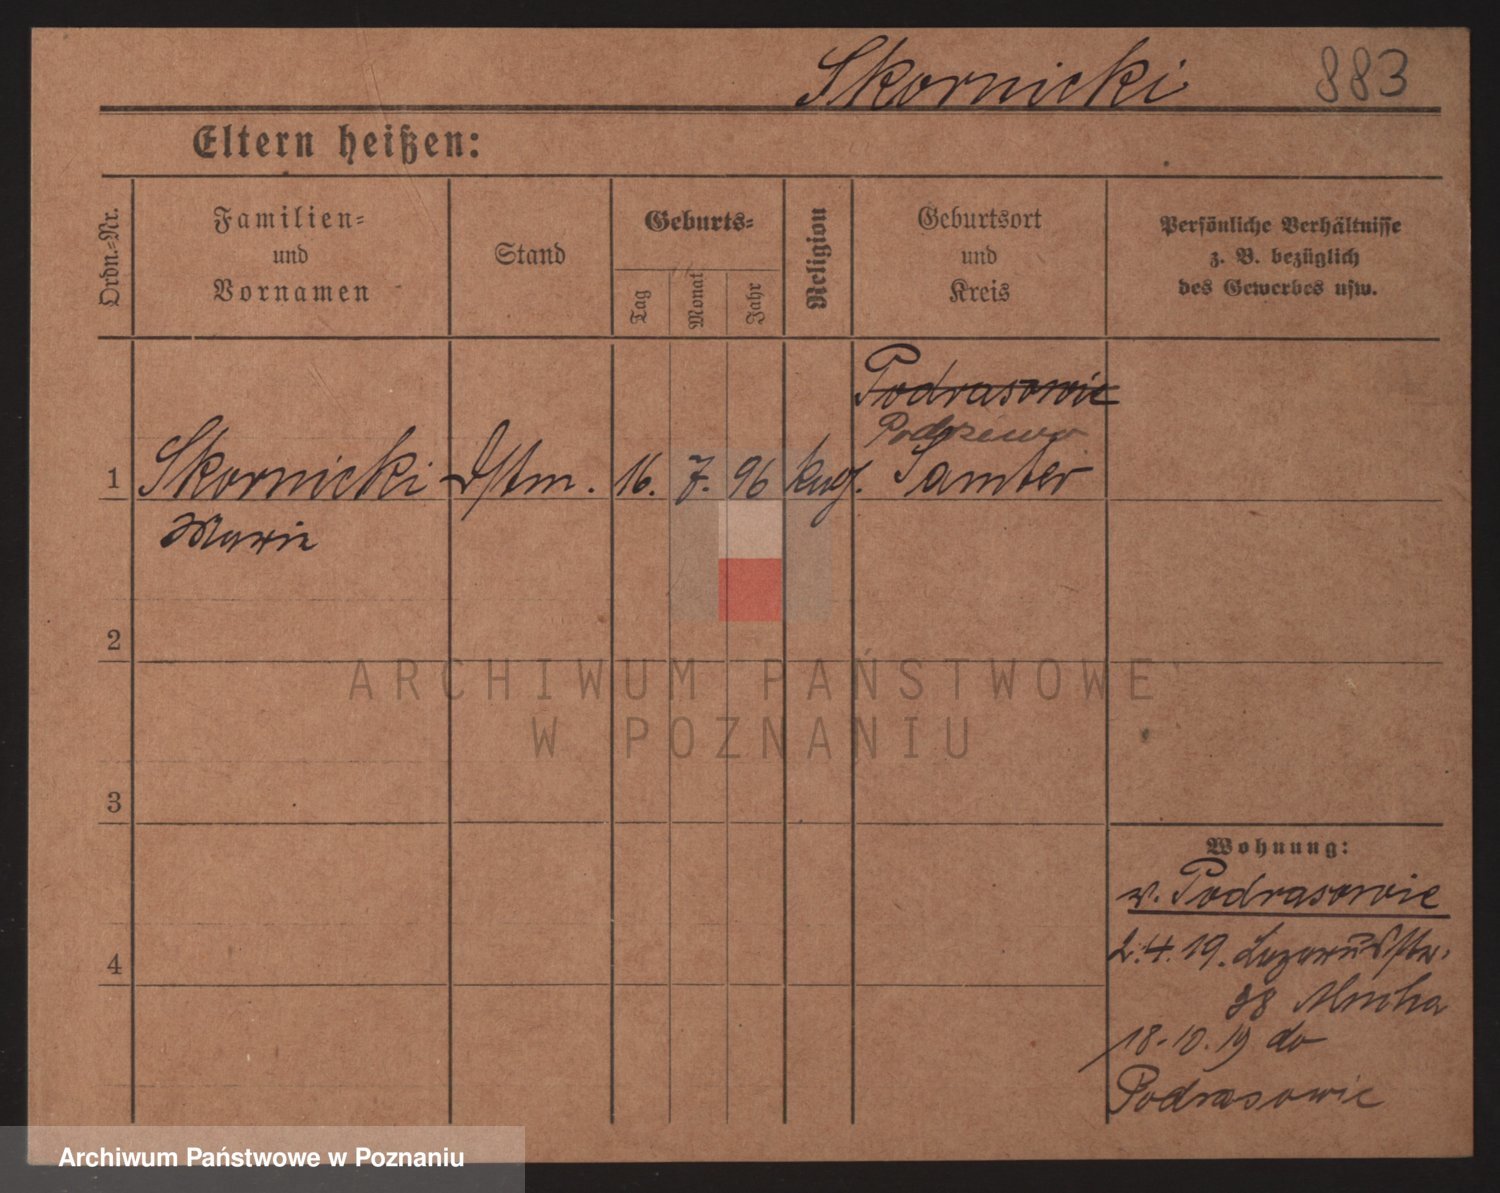 Skornicki 883
Eltern heißen:
Ordn.=Nr.
Familien=
und
Vornamen
Stand
Geburts=
Tag
Monat
Jahr
Religion
Geburtsort
und
Kreis
Persönliche Verhältnisse
z. B. bezüglich
des Gewerbes usw.
Podrasowie
Podrzewo
1 Skornicki Dstm. 16. 7. 96 Samter
Marie
2
3
4
Wohnung:
v. Podrasowie
2.4.19. Lazarusstr.
28 Mucha
18.10.19 do
Podrasowie
ARCHIWUM PAŃSTWOWE
W POZNANIU
Archiwum Państwowe w Poznaniu